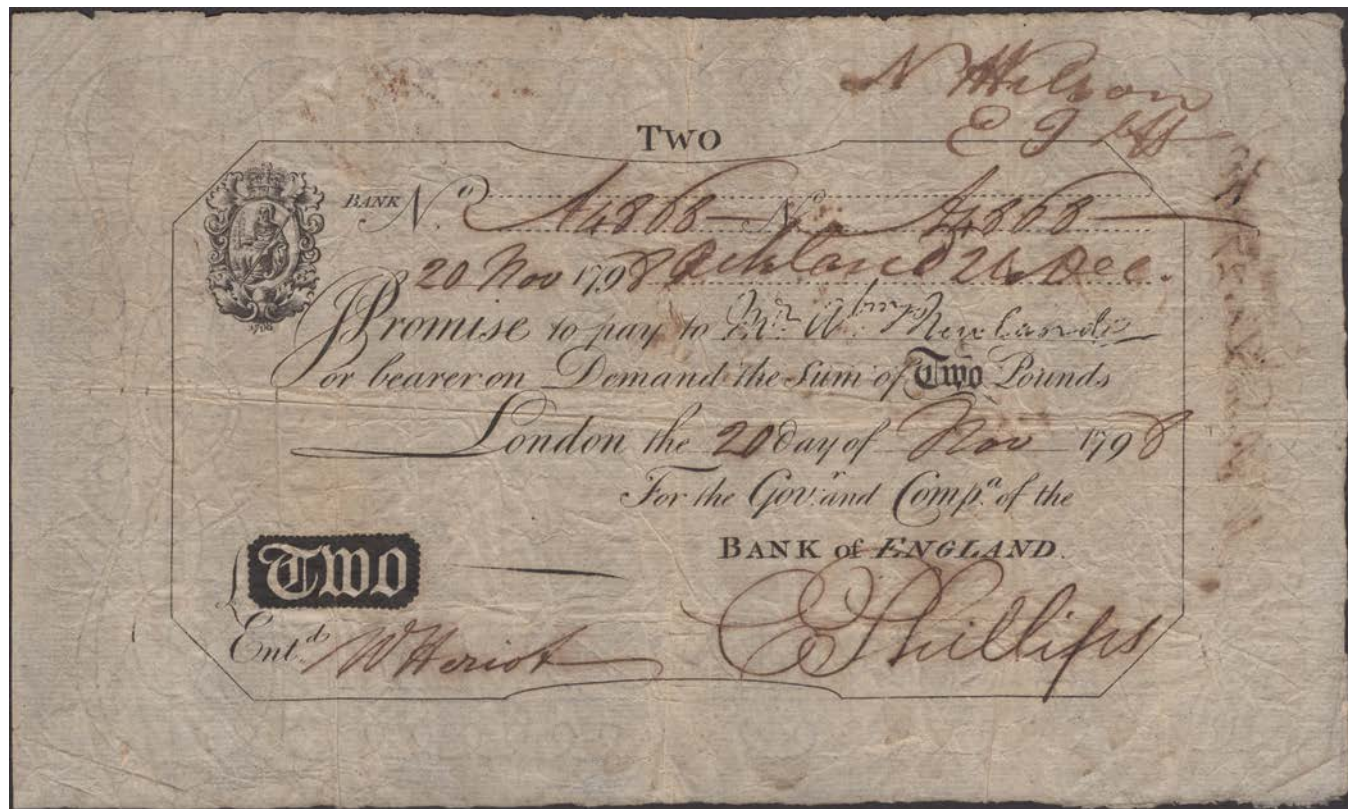 N Wilson
TWO
BANK No. A4868 No A4868
20 Nov 1798 26 Dec.
1798
I Promise to pay to Mr. Abm. Newland
or bearer on Demand the Sum of Two Pounds
London the 20 day of Nov 1798
For the Govr. and Compa. of the
BANK of ENGLAND.
£ TWO
Entd. W Heriot
E Phillips